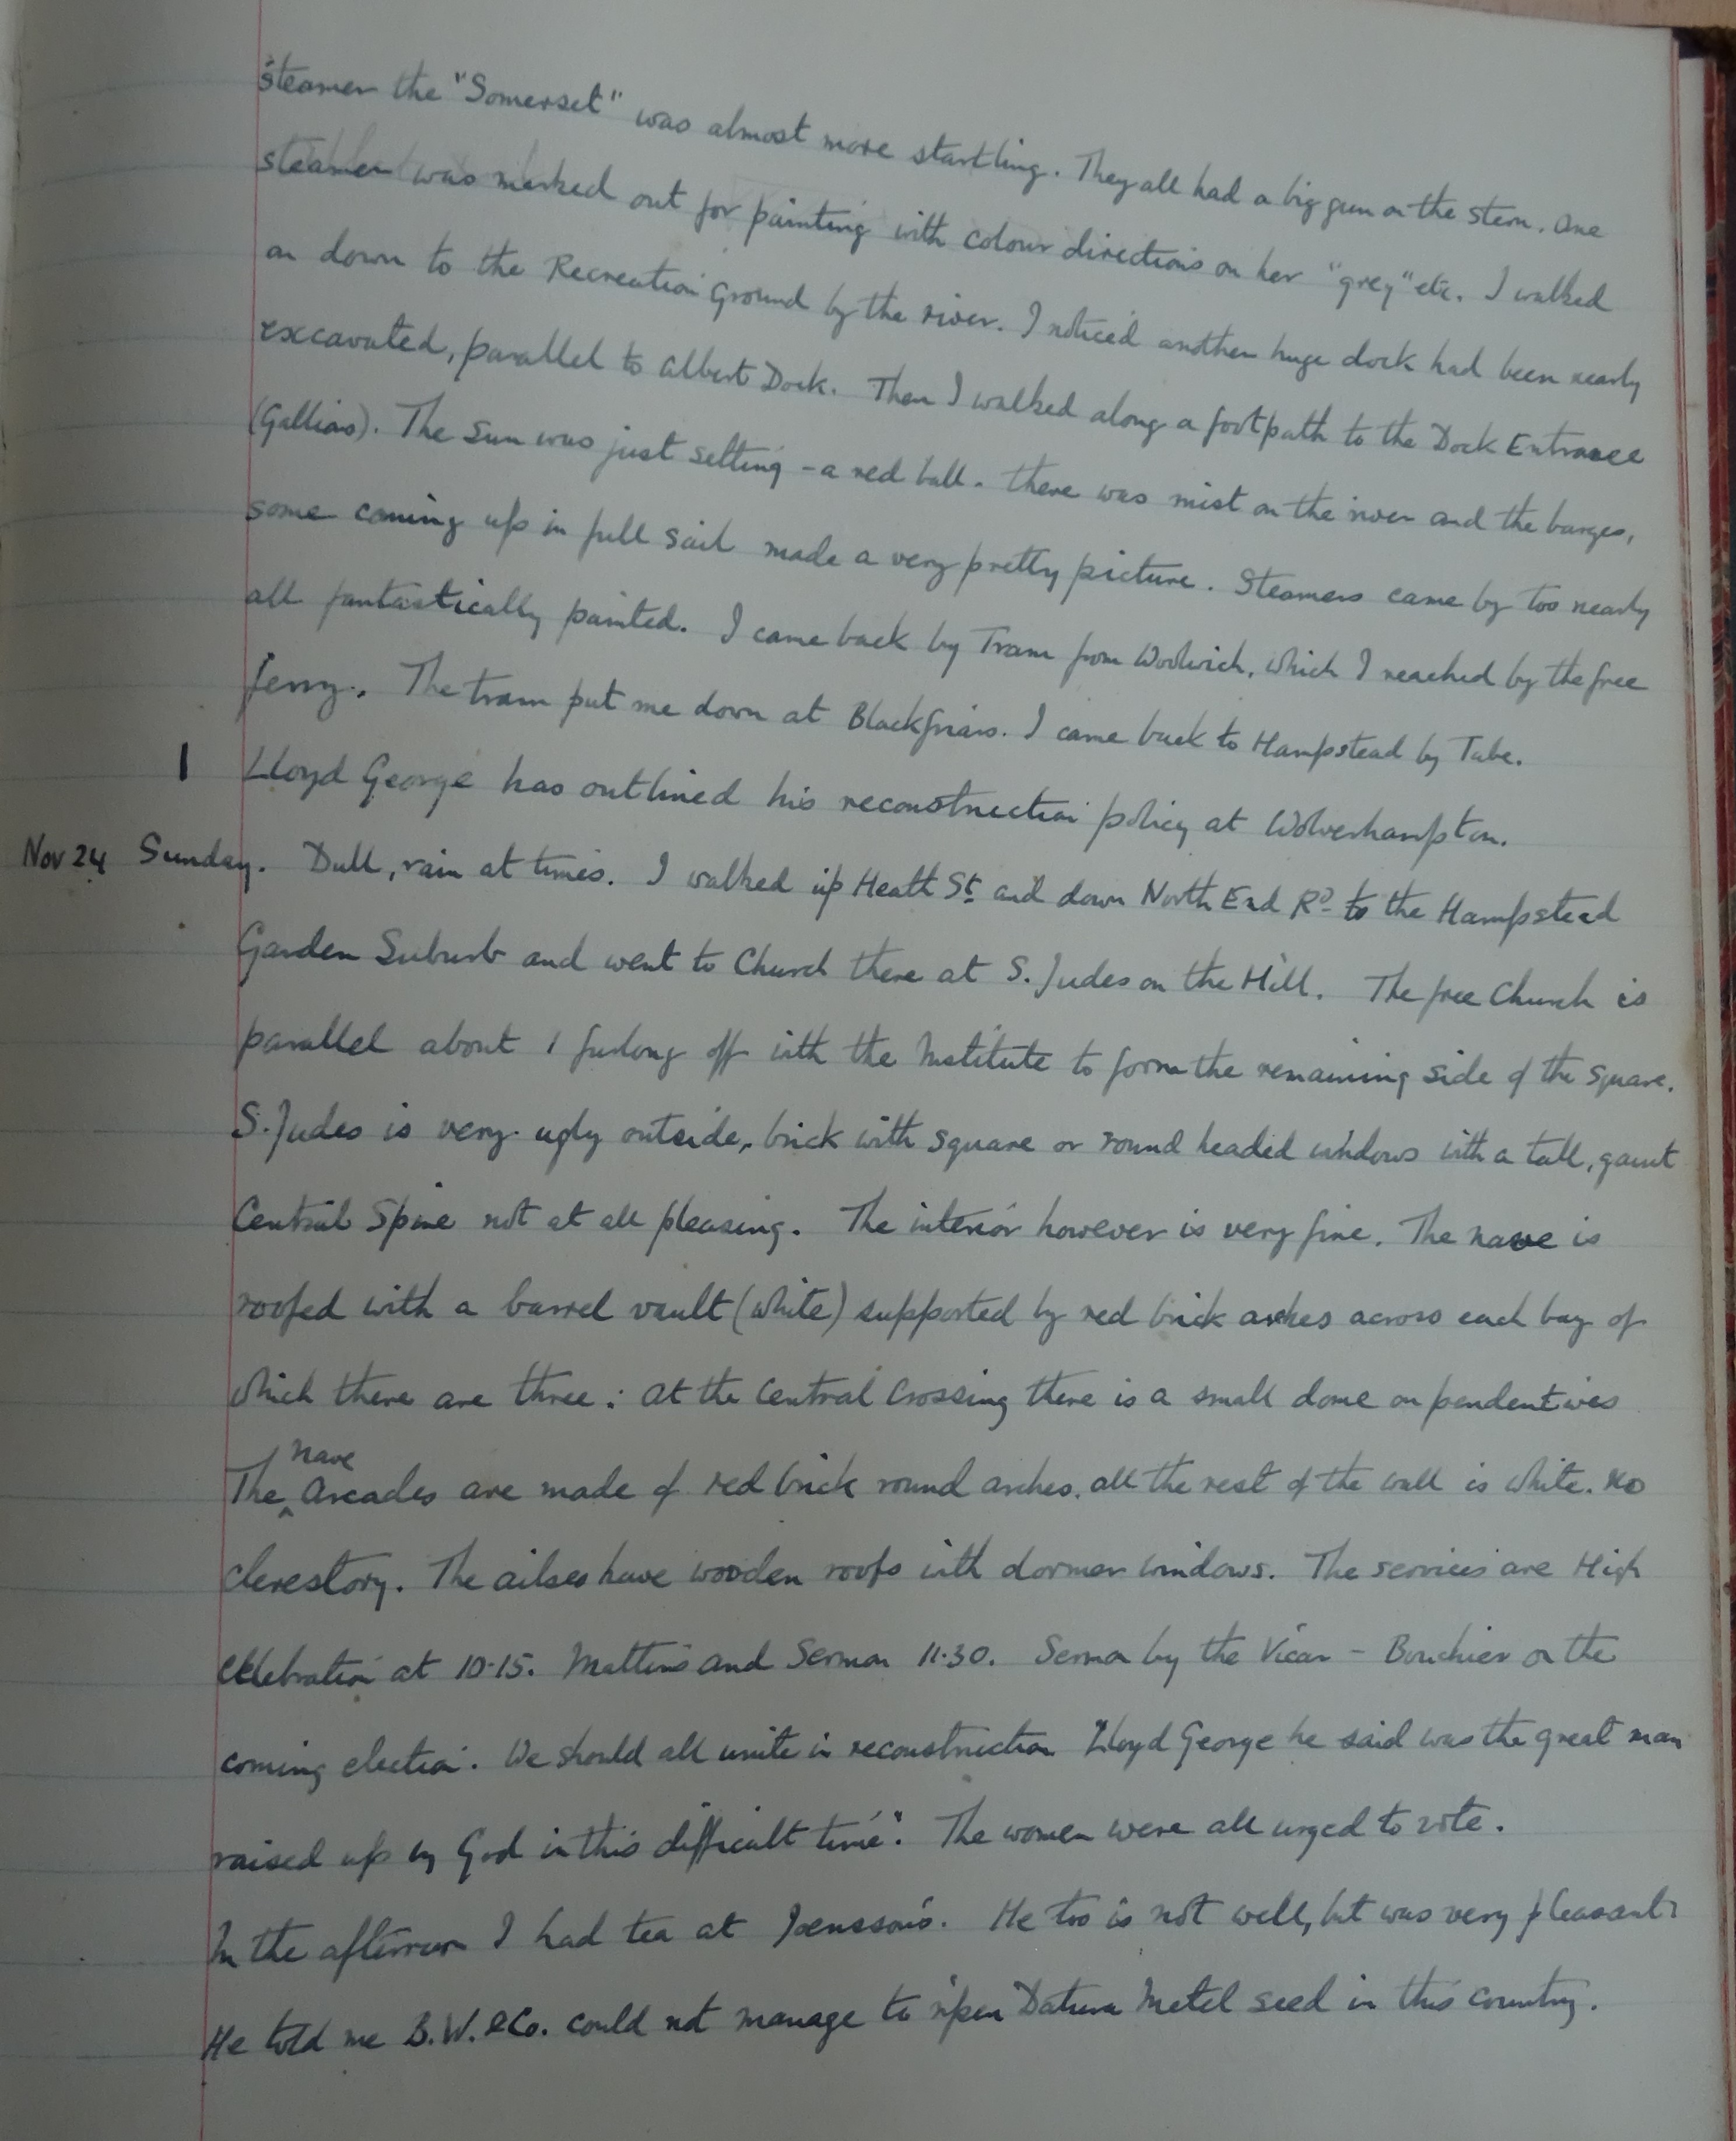 steamer the "Somerset" was almost more startling. They all had a big gun on the stern. One
steamer was marked out for painting with colour directions on her "grey" etc. I walked
on down to the Recreation Ground by the river. I noticed another huge dock had been nearly
excavated, parallel to Albert Dock. Then I walked along a footpath to the Dock Entrance
(Gallions). The Sun was just setting - a red ball. there was mist on the river and the barges,
some coming up in full sail made a very pretty picture. Steamers came by too nearly
all fantastically painted. I came back by Tram from Woolwich, which I reached by the free
ferry. The tram put me down at Blackfriars. I came back to Hampstead by Tube.
| Lloyd George has outlined his reconstruction policy at Wolverhampton.
Nov 24 Sunday. Dull, rain at times. I walked up Heath St. and down North End Rd. to the Hampstead
Garden Suburb and went to Church there at S. Judes on the Hill. The free Church is
parallel about 1 furlong off with the Institute to form the remaining side of the square.
S. Judes is very ugly outside, brick with square or round headed windows with a tall, gaunt
Central Spire not at all pleasing. The interior however is very fine. The nave is
roofed with a barrel vault (white) supported by red brick arches across each bay of
which there are three: at the Central Crossing there is a small dome on pendentives
The nave Arcades are made of red brick round arches, all the rest of the wall is white. No
clerestory. The ailses have wooden roofs with dormer windows. The services are High
Celebration at 10.15. Mattins and Sermon 11.30. Sermon by the Vicar - Bourchier on the
coming election. We should all unite in reconstruction "Lloyd George he said was the great man
raised up by God in this difficult time". The women were all urged to vote.
In the afternoon I had tea at Jensson's. He too is not well, but was very pleasant.
He told me B.W. & Co. could not manage to ripen Datura Metel seed in this country.